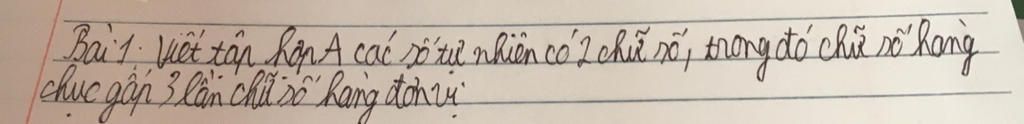 Bài 1: Viết tập hợp A các số tự nhiên có 2 chữ số, trong đó chữ số hàng
chục gấp 3 lần chữ số hàng đơn vị.